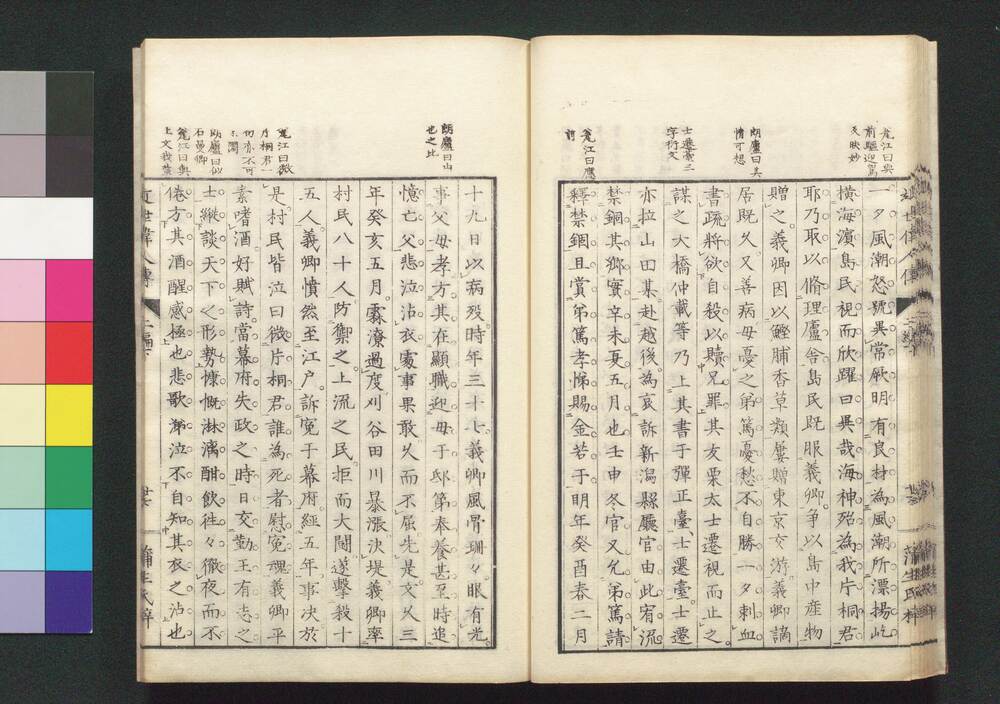 一夕風潮怒號異常厥明有良材為風潮所漂揚屹
橫海濱島民視而欣躍曰異哉海神殆為我片桐君
耶乃取以脩理廬舍島民既服義卿爭以島中產物
贈之義卿因以鰹脯香草類屢贈東京交游義卿謫
居既久又善病母憂之弟篤憂愁不自勝一夕刺血
書疏將欲自殺以贖兄罪其友栗太士遷視而止之
謀之大橋仲載等乃上其書于彈正臺士遷臺士遷
亦拉山田某赴越後為哀訴新潟縣廳官由此宥流
禁錮其鄉實辛未夏五月也壬申冬官又允弟篤請
釋禁錮且賞弟篤孝悌賜金若干明年癸酉春二月
十九日以病歿時年三十七義卿風骨珊々眼有光
事父母孝方其在顯職迎母于邸第奉養甚至時追
憶亡父悲泣沾衣處事果敢久而不屈先是文久三
年癸亥五月霖潦過度刈谷田川暴漲決堤義卿率
村民八十人防禦之上流之民拒而大鬪遂擊殺十
五人義卿憤然至江戶訴冤于幕府經五年事決於
是村民皆泣曰微片桐君誰為死者慰冤魂義卿平
素嗜酒好賦詩當幕府失政之時日交勤王有志之
士縱談天下之形勢慷慨淋漓酣飲往々徹夜而不
倦方其酒醒感極也悲歌涕泣不自知其衣之沾也
士遷臺三
字衍文
朗廬曰其
情可想
朗廬曰山
也之比
近世偉人傳
蒲生氏梓